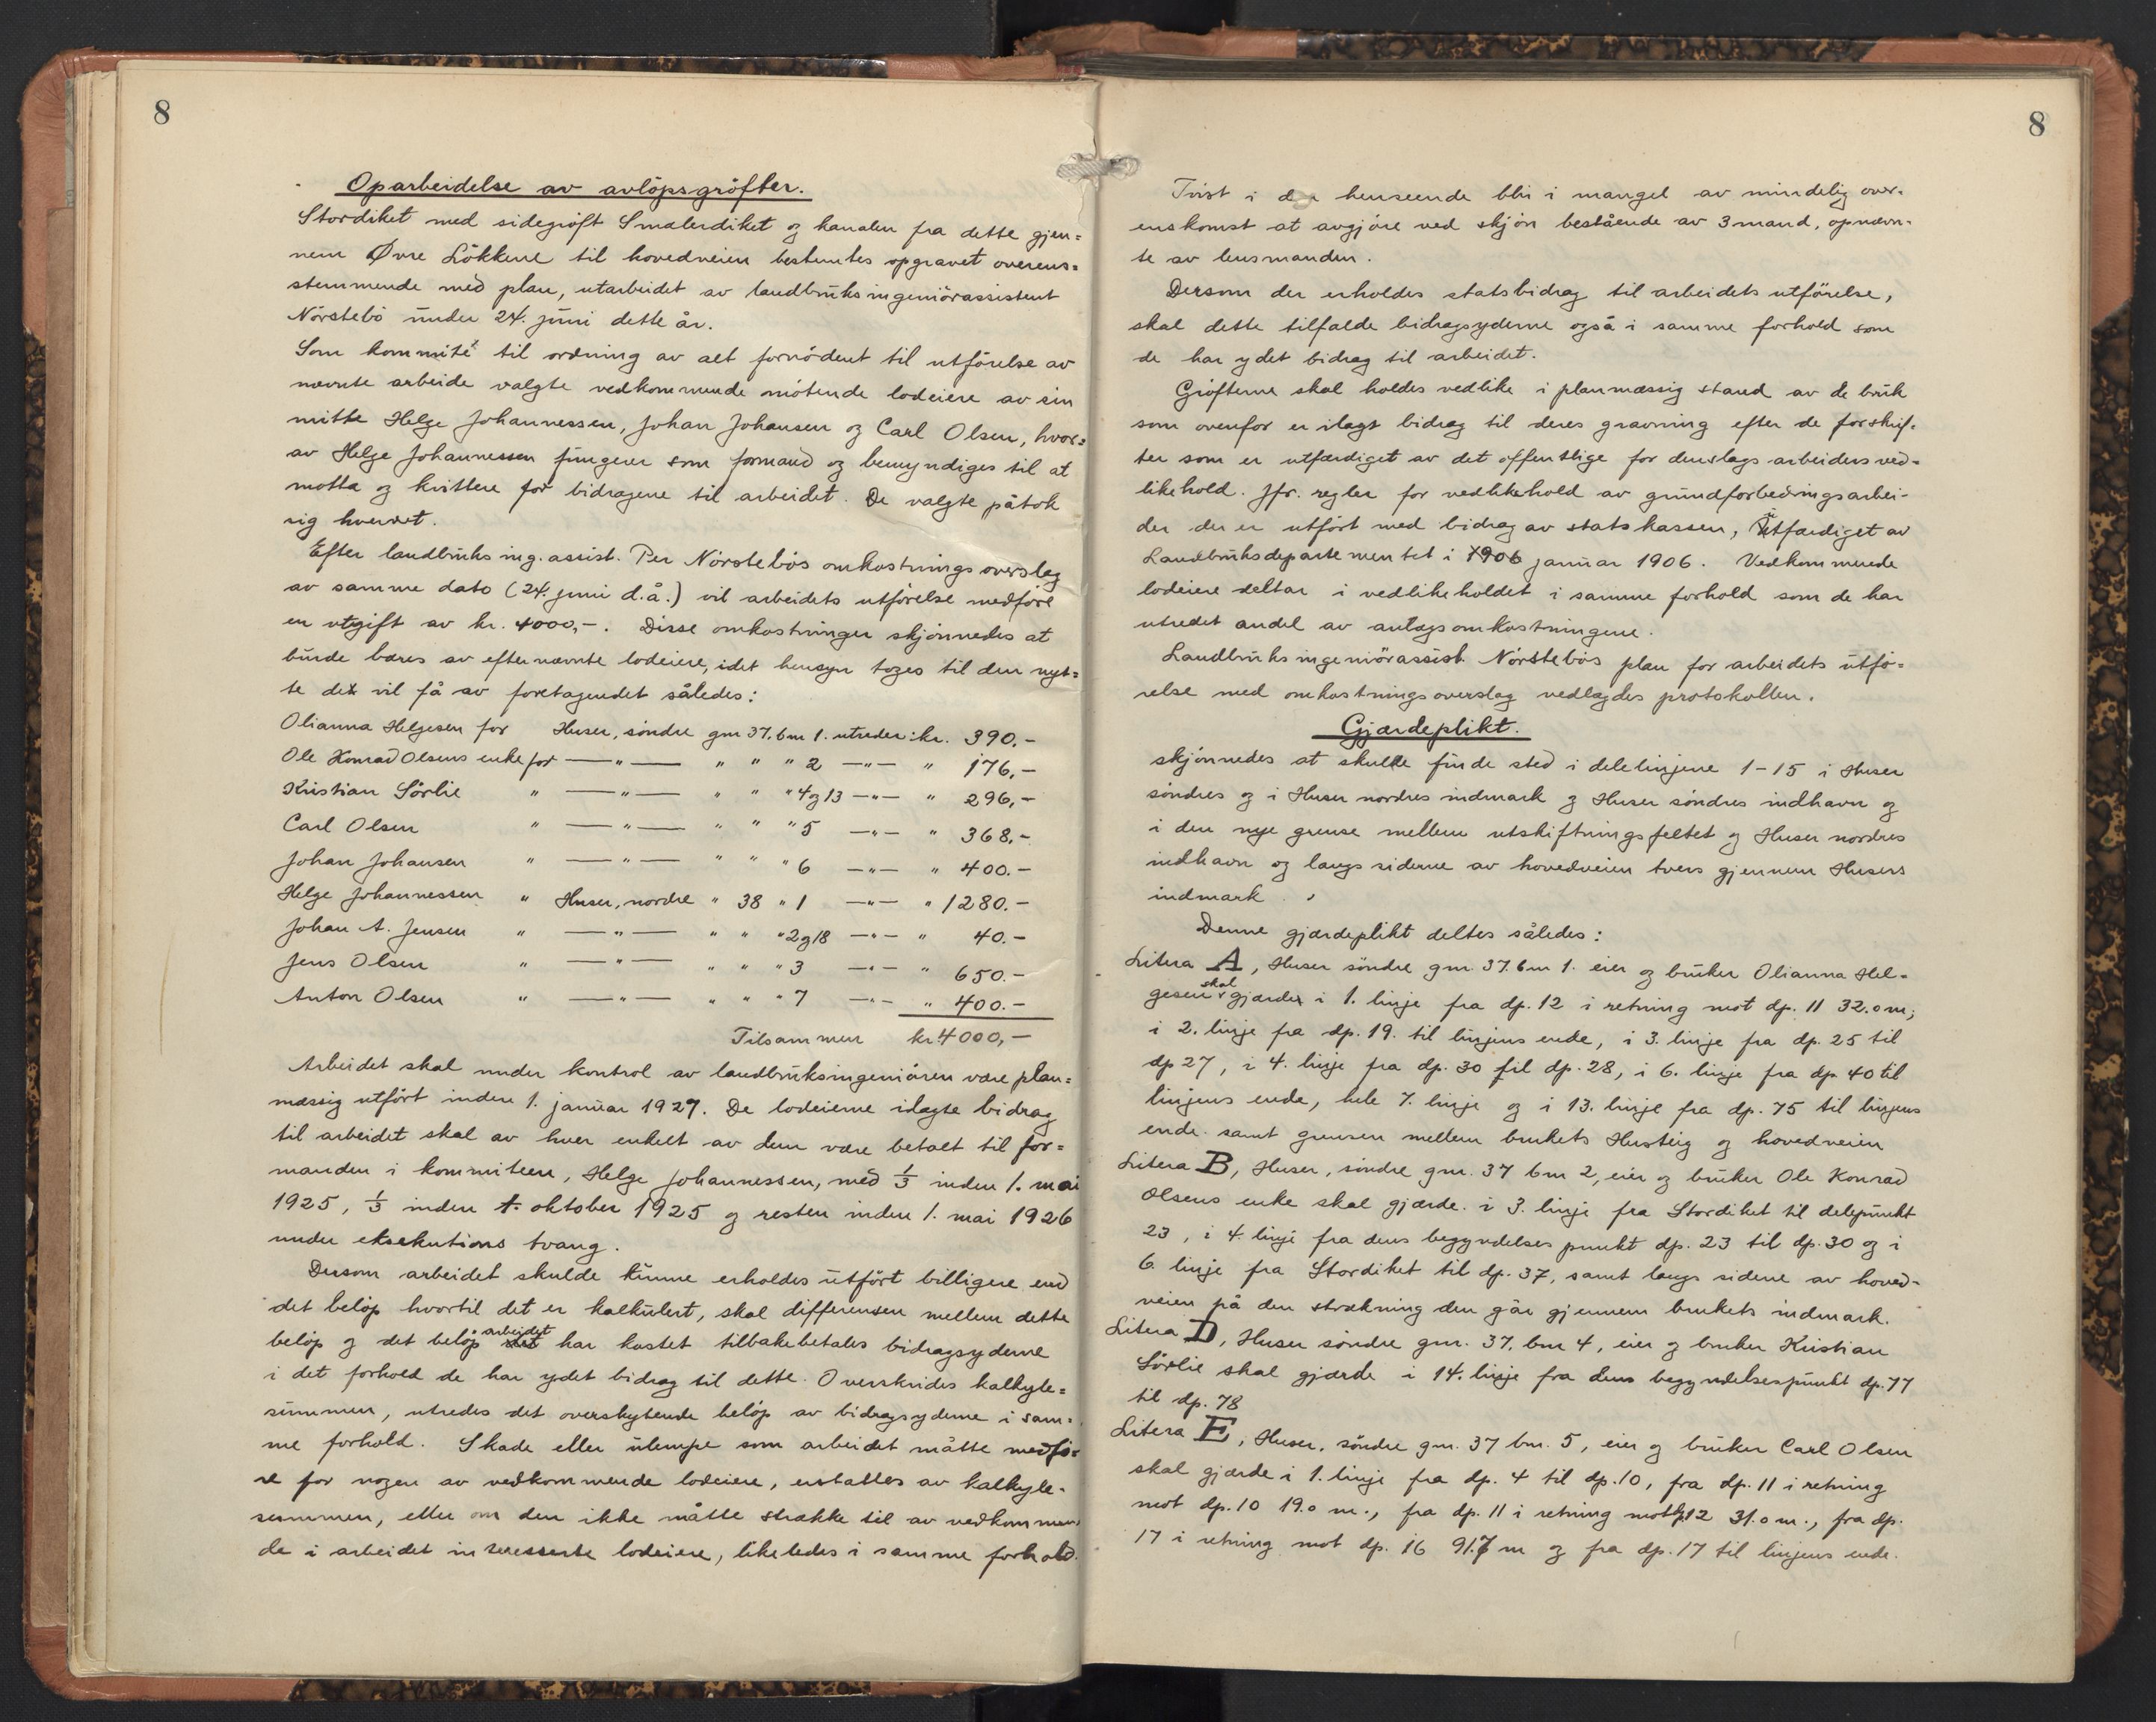 8
Oparbeidelse av avlöpsgröfter.
Stordiket med sidegröft Smalerdiket og kanalen fra dette gjen=
nem Øvre Lökkene til hovedveien bestemtes opgravet overens=
stemmende med plan, utarbeidet av landbruksingeniörassistent
Nörstebö under 24. juni dette år.
Som kommité til ordning av alt fornödent til utförelse av
nævnte arbeide valgte vedkommende mötende lodeiere av sin
mitte Helge Johannessen, Johan Johansen og Carl Olsen, hvor=
av Helge Johannessen fungerer som formand og bemyndiges til at
motta og kvittere for bidragene til arbeidet. De valgte påtok
sig hvervet.
Efter landbruks ing. assist. Per Nörstebös omkostningsoverslag
av samme dato (24. juni d.å.) vil arbeidets utförelse medföre
en utgift av kr. 4000,-. Disse omkostninger skjönnedes at
burde bæres av efternævnte lodeiere, idet hensyn toges til den nyt=
te de vil få av foretagendet således:
Olianna Helgesen for Huser, söndre gm 37. bm 1. utreder: kr. 390.-
Ole Konrad Olsens enke for —"— " " " 2 —"— " 176,-
Kristian Sörlie " —"— " " " 4 og 13 —"— " 296,-
Carl Olsen " —"— " " " 5 —"— " 368,-
Johan Johansen " —"— " " " 6 —"— " 400.-
Helge Johannessen " Huser, nordre " 38 " 1 —"— " 1280.-
Johan A. Jensen " —"— " " " 2 og 18 —"— " 40.-
Jens Olsen " —"— " " " 3 —"— " 650.-
Anton Olsen " —"— " " " 7 —"— " 400.-
Tilsammen kr. 4000,-
Arbeidet skal under kontrol av landbruksingeniören være plan=
mæssig utfört inden 1. januar 1927. De lodeierne ilagte bidrag
til arbeidet skal av hver enkelt av dem være betalt til for=
manden i kommiteen, Helge Johannessen, med 1/3 inden 1. mai
1925, 1/3 inden 1. oktober 1925 og resten inden 1. mai 1926
under eksekutions tvang.
Dersom arbeidet skulde kunne erholdes utfört billigere end
det belöp hvortil det er kalkulert, skal differensen mellem dette
belöp og det belöp arbeidet har kostet tilbakebetales bidragsyderne
i det forhold de har ydet bidrag til dette. Overskrides kalkyle=
summen, utredes det overskytende belöp av bidragsyderne i sam=
me forhold. Skade eller ulempe som arbeidet måtte medfö=
re for nogen av vedkommende lodeiere, erstattes av kalkyle-
summen, eller om den ikke måtte strække til av vedkommen
de i arbeidet interesserte lodeiere, likeledes i samme forhold.
8
Tvist i henseende blir i mangel av mindelig over-
enskomst at avgjöre ved skjön bestående av 3 mand, opnævn-
te av lensmanden.
Dersom der erholdes statsbidrag til arbeidets utförelse,
skal dette tilfalde bidragsyderne også i samme forhold som
de har ydet bidrag til arbeidet.
Gröfterne skal holdes vedlike i planmæssig stand av de bruk
som ovenfor er ilagt bidrag til deres gravning efter de forskrif-
ter som er utfærdiget av det offentlige for denslags arbeiders ved-
likehold. Jfr. regler for vedlikehold av grundforbedringsarbei-
der der er utfört med bidrag av statskassen, utfærdiget av
Landbruksdepartementet i 1906 januar 1906. Vedkommende
lodeiere deltar i vedlikeholdet i samme forhold som de har
utredet andel av anlægsomkostningene.
Landbruksingeniörassist. Nörstebös plan for arbeidets utfö-
relse med omkostningsoverslag vedlægdes protokollen.
Gjærdeplikt.
skjönnedes at skulle finde sted i delelinjene 1-15 i Huser
söndres og i Huser nordres indmark og Huser söndres indhavn og
i den nye grense mellem utskiftningsfeltet og Huser nordres
indhavn og langs siderne av hovedveien tvers gjennem Husers
indmark.
Denne gjærdeplikt deltes således:
Litera A, Huser söndre gnr. 37. bm 1. eier og bruker Olianna Hel-
gesen skal gjærde i 1. linje fra dp. 12 i retning mot dp. 11 32.0 m;
i 2. linje fra dp. 19. til linjens ende, i 3. linje fra dp. 25 til
dp 27, i 4. linje fra dp. 30 til dp. 28, i 6. linje fra dp. 40 til
linjens ende, hele 7. linje og i 13. linje fra dp. 75 til linjens
ende. samt grensen mellem brukets Husteig og hovedveien
Litera B, Huser, söndre gnr. 37 bm 2, eier og bruker Ole Konrad
Olsens enke skal gjærde. i 3. linje fra Stordiket til delepunkt
23, i 4. linje fra dens begyndelses punkt dp. 23 til dp. 30 og i
6. linje fra Stordiket til dp. 37, samt langs siderne av hoved-
veien på den strækning den går gjennem brukets indmark.
Litera D, Huser söndre gnr. 37, bnr 4, eier og bruker Kristian
Sörlie skal gjærde i 14. linje fra dens begyndelsespunkt dp. 77
til dp. 78
Litera E, Huser, söndre gnr. 37 bnr. 5, eier og bruker Carl Olsen
skal gjærde i 1. linje fra dp. 4 til dp. 10, fra dp. 11 i retning
mot dp. 10 19.0 m., fra dp. 11 i retning mot dp. 12 31.0 m., fra dp.
17 i retning mot dp. 16 91.7 m og fra dp. 17 til linjens ende.